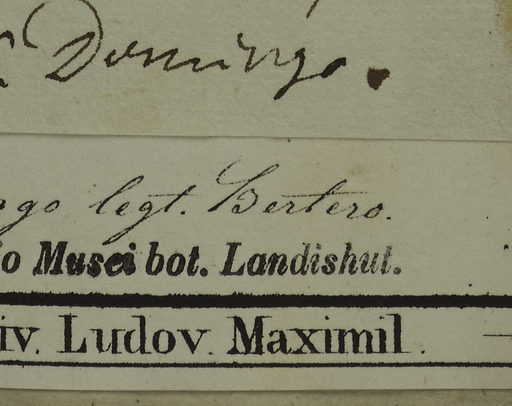 Domingo.
ngo legt. Bertero.
io Musei bot. Landishut.
iv. Ludov. Maximil.